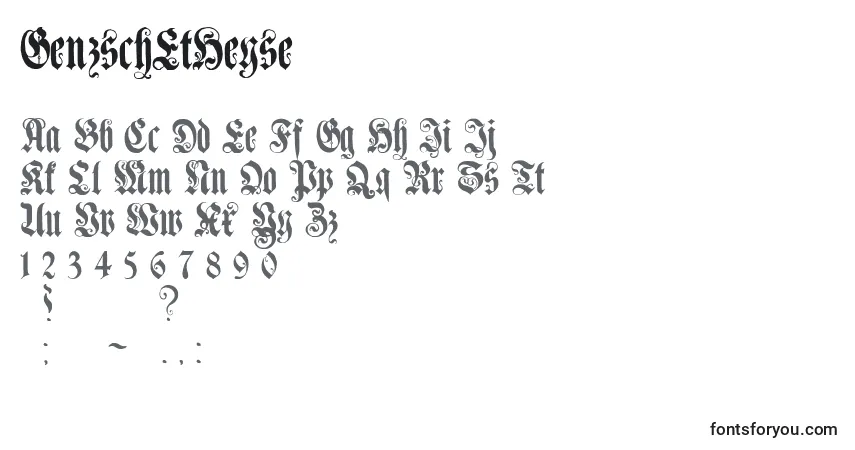 GenzschEtHeyse
Aa Bb Cc Dd Ee Ff Gg Hh Ii Jj
Kk Ll Mm Nn Oo Pp Qq Rr Ss Tt
Uu Vv Ww Xx Yy Zz
1 2 3 4 5 6 7 8 9 0
! ?
; ~ . , :
fontsforyou.com